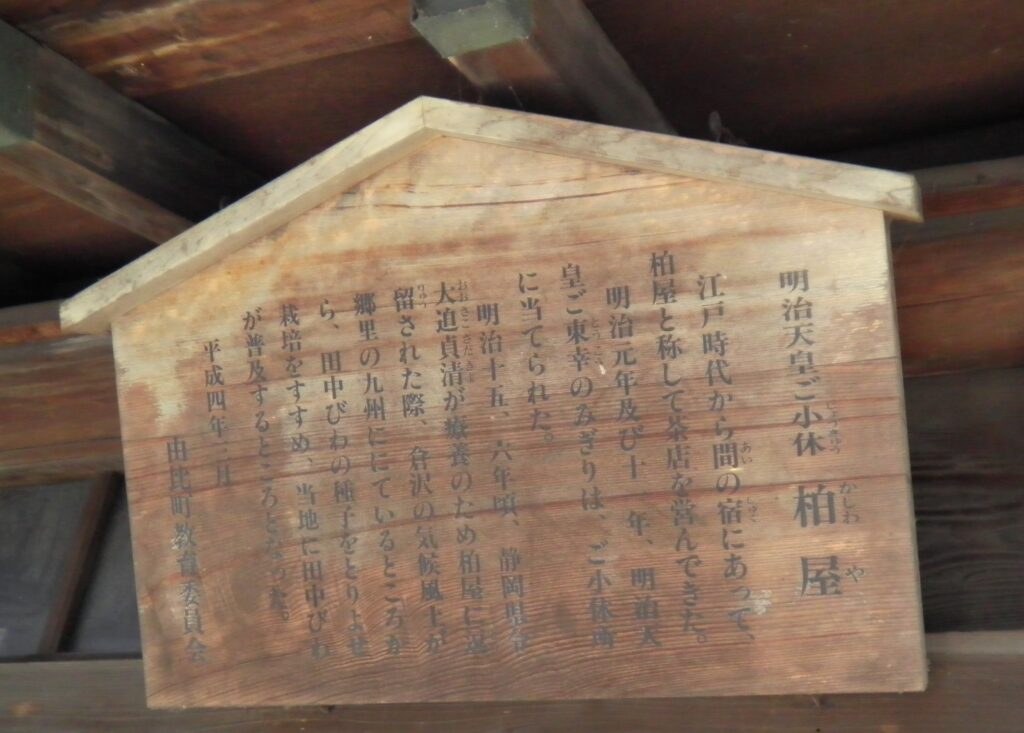 明治天皇ご小休 柏屋
江戸時代から間の宿にあって、
柏屋と称して茶店を営んできた。
明治元年及び十 年、明治天
皇ご東幸のみぎりは、ご小休所
に当てられた。
明治十五、六年頃、静岡県令
大迫貞清が療養のため柏屋に逗
留された際、倉沢の気候風土が
郷里の九州ににているところか
ら、田中びわの種子をとりよせ
栽培をすすめ、当地に田中びわ
が普及するところとなった。
平成四年 月
由比町教育委員会